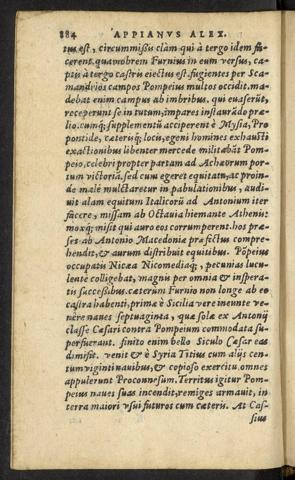 884 APPIANVS ALEX.
tus est, circummissis clàm qui à tergo idem fa-
cerent. quamobrem Furnius in eum versus, ca-
ptis à tergo castris eiectus est. fugientes per Sca-
mandrios campos Pompeius multos occidit. ma-
debat enim campus ab imbribus. qui euaserūt,
receperunt se in tutum, impares instaurādo præ-
lio. cumq; supplementū acciperent è Mysia, Pro
pontide, cæterisq; locis, egeni homines exhausti
exactionibus libenter mercede militabāt Pom-
peio, celebri propter partam ad Achæorum por-
tum victoriā. sed cum egeret equitatu, ac proin-
de malè mulctaretur in pabulationibus, audi-
uit alam equitum Italicorū ad Antonium iter
facere, missam ab Octauia hiemante Athenis:
moxq; misit qui auro eos corrumperent. hos præ-
ses ab Antonio Macedonia præfectus compre-
hendit, & aurum distribuit equitibus. Pōpeius
occupatis Nicæa Nicomediaq;, pecunias lucu-
lentè colligebat, magnis per omnia & inspera-
tis successibus. cæterùm Furnio non longè ab eo
castra habenti, primæ è Sicilia vere ineunte ve-
nêre naues septuaginta, quæ solæ ex Antonij
classe Cæsari contra Pompeium commodata su-
perfuerant. finito enim bello Siculo Cæsar eas
dimisit. venit & è Syria Titius cum alijs cen-
tum viginti nauibus, & copioso exercitu. omnes
appulerunt Proconnesum. Territus igitur Pom-
peius naues suas incendit, remiges armauit, in
terra maiori vsui futuros cum cæteris. At Cas-
sius